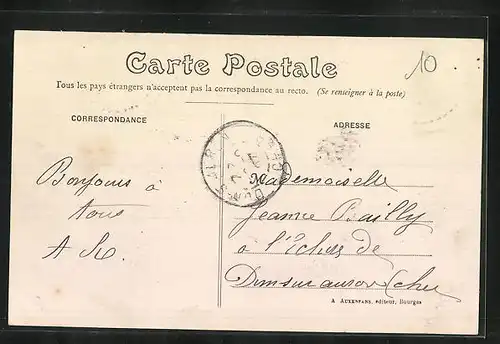 10
Carte Postale
Tous les pays étrangers n'acceptent pas la correspondance au recto. (Se renseigner à la poste)
CORRESPONDANCE
ADRESSE
Mademoiselle
Bonjours à
tous
Jeanne Bailly
à l'Echez de
Dun sur auron Cher
A. AUXENFANS, éditeur, Bourges